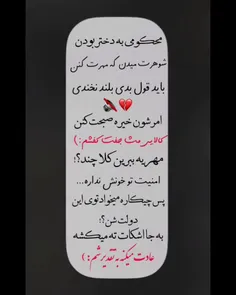 محکومی به دختر بودن
شوهرت میدن که مهرت کنن
باید قول بدی بلند نخندی
💔
امرشون خیره صبحت کنن
کالایی مث جفت کفشم : )
مهریه ببرین کلا چند؟!
امنیت تو خونش نداره...
پس چیکاره میخواد توی این
دولت شن؟:
به جا اشکات ته میکشه
عادت میکنه به تقدیرشم : )